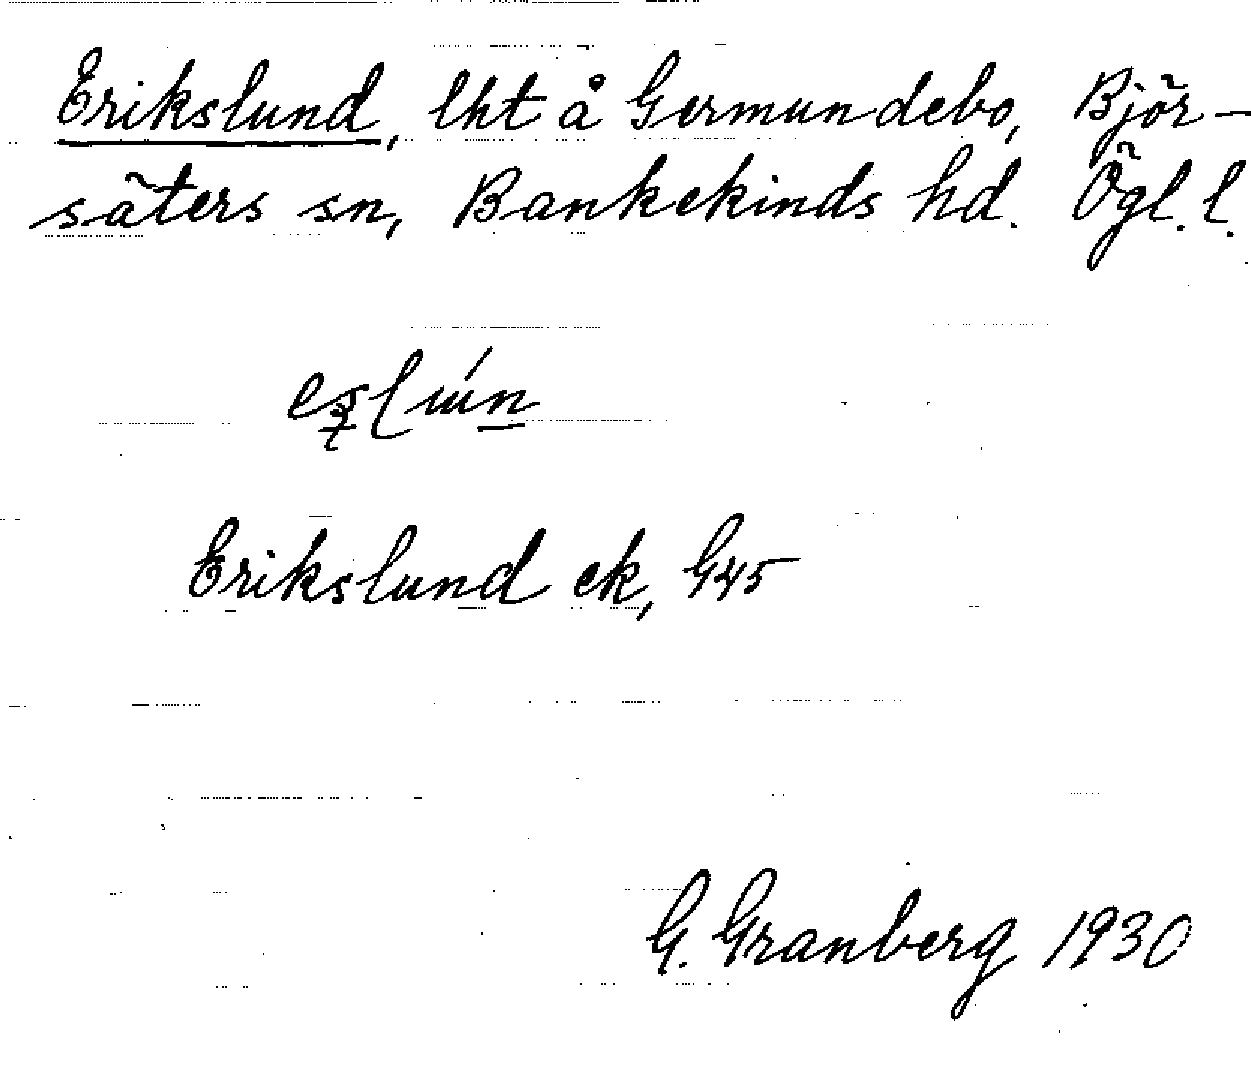 Erikslund, lht å Germundebo, Björ-
säters sn, Bankekinds hd. Ögl. l.
Erikslund ek, G45
G. Granberg 1930